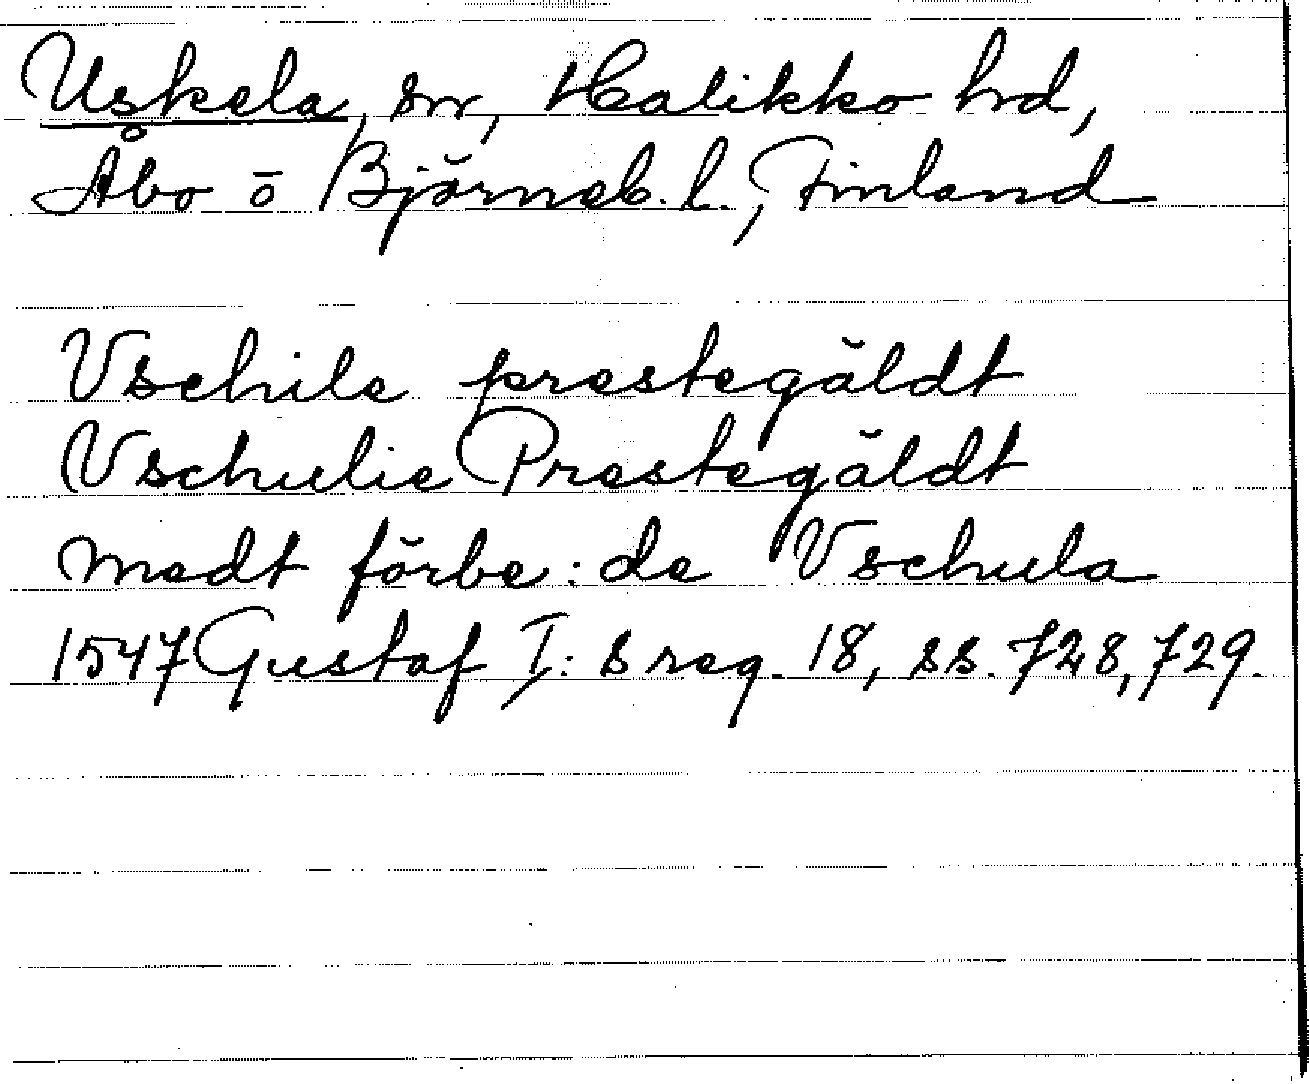 Uskela, sn, Halikko hd,
Åbo o Björneb. l., Finland
Vschile prestegäldt
Vschulie Prestegäldt
medt förbe: de Vschula
1547 Gustaf I: s reg. 18, ss. 728, 729.